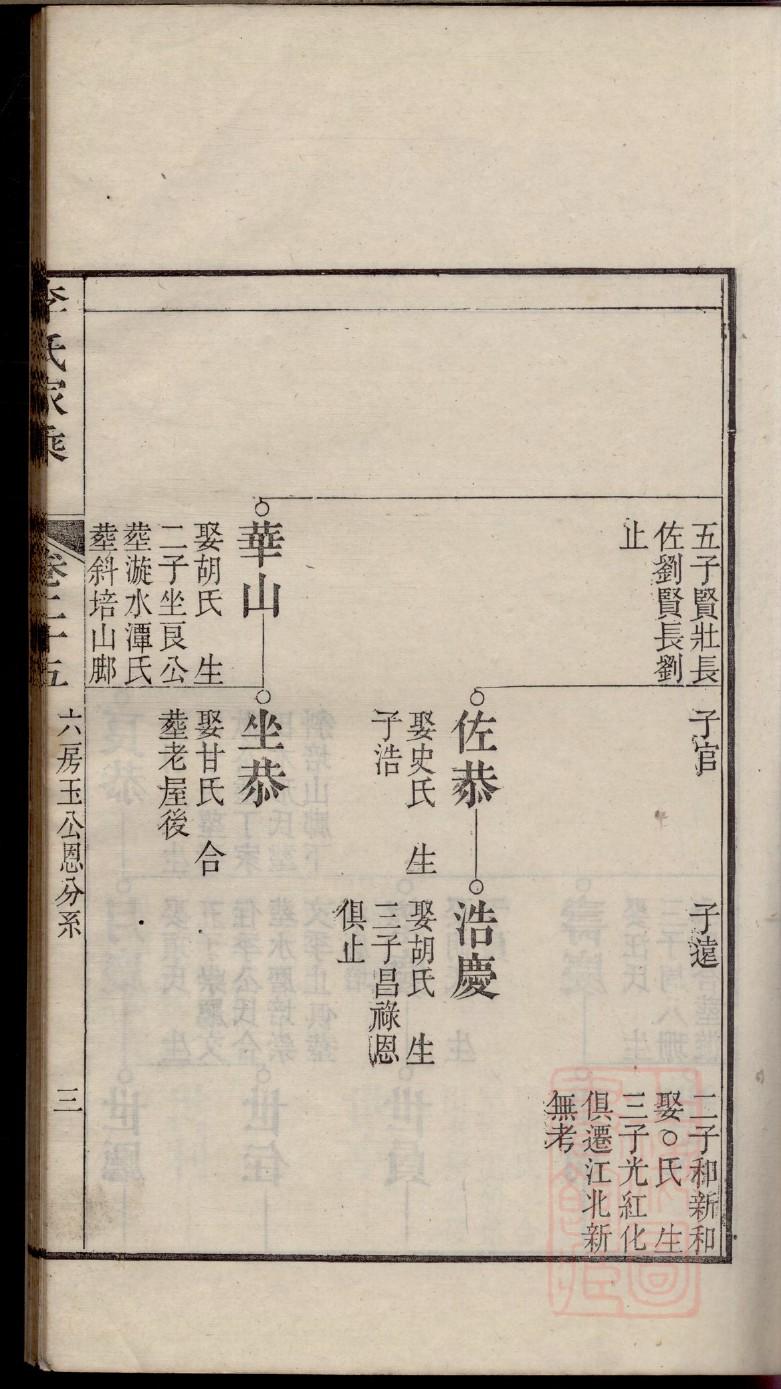 五子賢壯長
佐劉賢長劉
止
華山
娶胡氏　生
二子坐良公
塟漩水潭氏
塟斜培山脚
子官
佐恭
娶史氏　生
子浩
坐恭
娶甘氏　合
塟老屋後
子遠
浩慶
娶胡氏　生
三子昌祿恩
俱止
二子和新和
娶○氏　生
三子光紅化
俱遷江北新
無考
李氏家乘
卷二十五
六房玉公恩分系
三